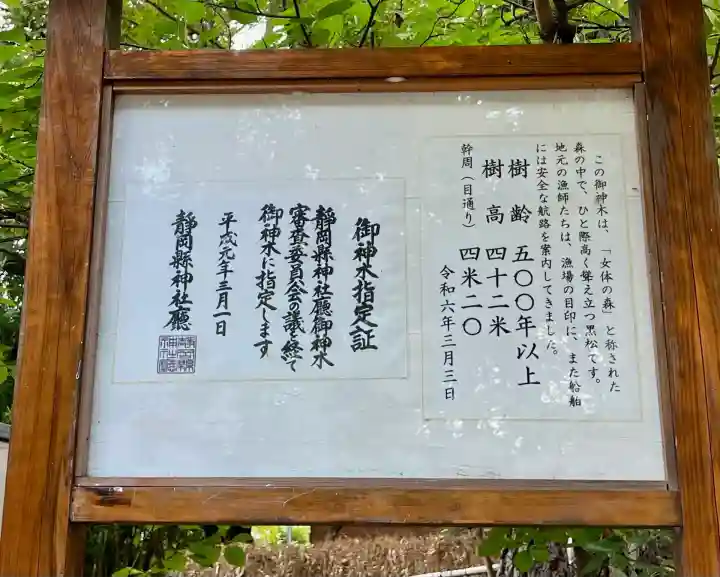 この御神木は、「女体の森」と称された
森の中で、ひと際高く聳え立つ黒松です。
地元の漁師たちは、漁場の目印に、また船舶
には安全な航路を案内してきました。
樹齢 五〇〇年以上
樹高 四十二米
幹周(目通り) 四米二〇
令和六年三月三日
御神木指定証
静岡縣神社廳御神木
審査委員会の議を経て
御神木に指定します
平成元年三月一日
静岡縣神社廳